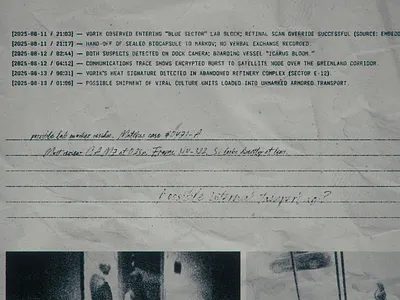 [2025-08-11 / 21:03] — VORIK OBSERVED ENTERING "BLUE SECTOR" LAB BLOCK; RETINAL SCAN OVERRIDE SUCCESSFUL (SOURCE: EMBED
[2025-08-11 / 21:17] — HAND-OFF OF SEALED BIOCAPSULE TO MARKOV; NO VERBAL EXCHANGE RECORDED.
[2025-08-12 / 02:44] — BOTH SUSPECTS DETECTED ON DOCK CAMERA; BOARDING VESSEL "ICARUS BLOOM."
[2025-08-12 / 04:12] — COMMUNICATIONS TRACE SHOWS ENCRYPTED BURST TO SATELLITE NODE OVER THE GREENLAND CORRIDOR.
[2025-08-13 / 00:31] — VORIK'S HEAT SIGNATURE DETECTED IN ABANDONED REFINERY COMPLEX (SECTOR E-12).
[2025-08-13 / 01:06] — POSSIBLE SHIPMENT OF VIRAL CULTURE UNITS LOADED INTO UNMARKED ARMORED TRANSPORT.
possible lab marker residue. Matches case
at Frame directly at lens.
Possible internal